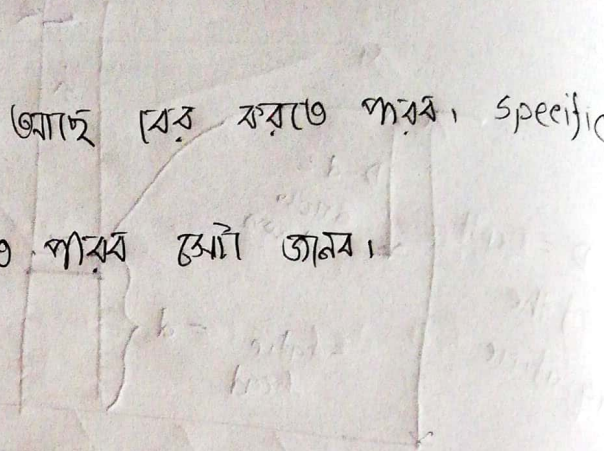 আছে বের করতে পারব। specific
পারব সেটা জানব।